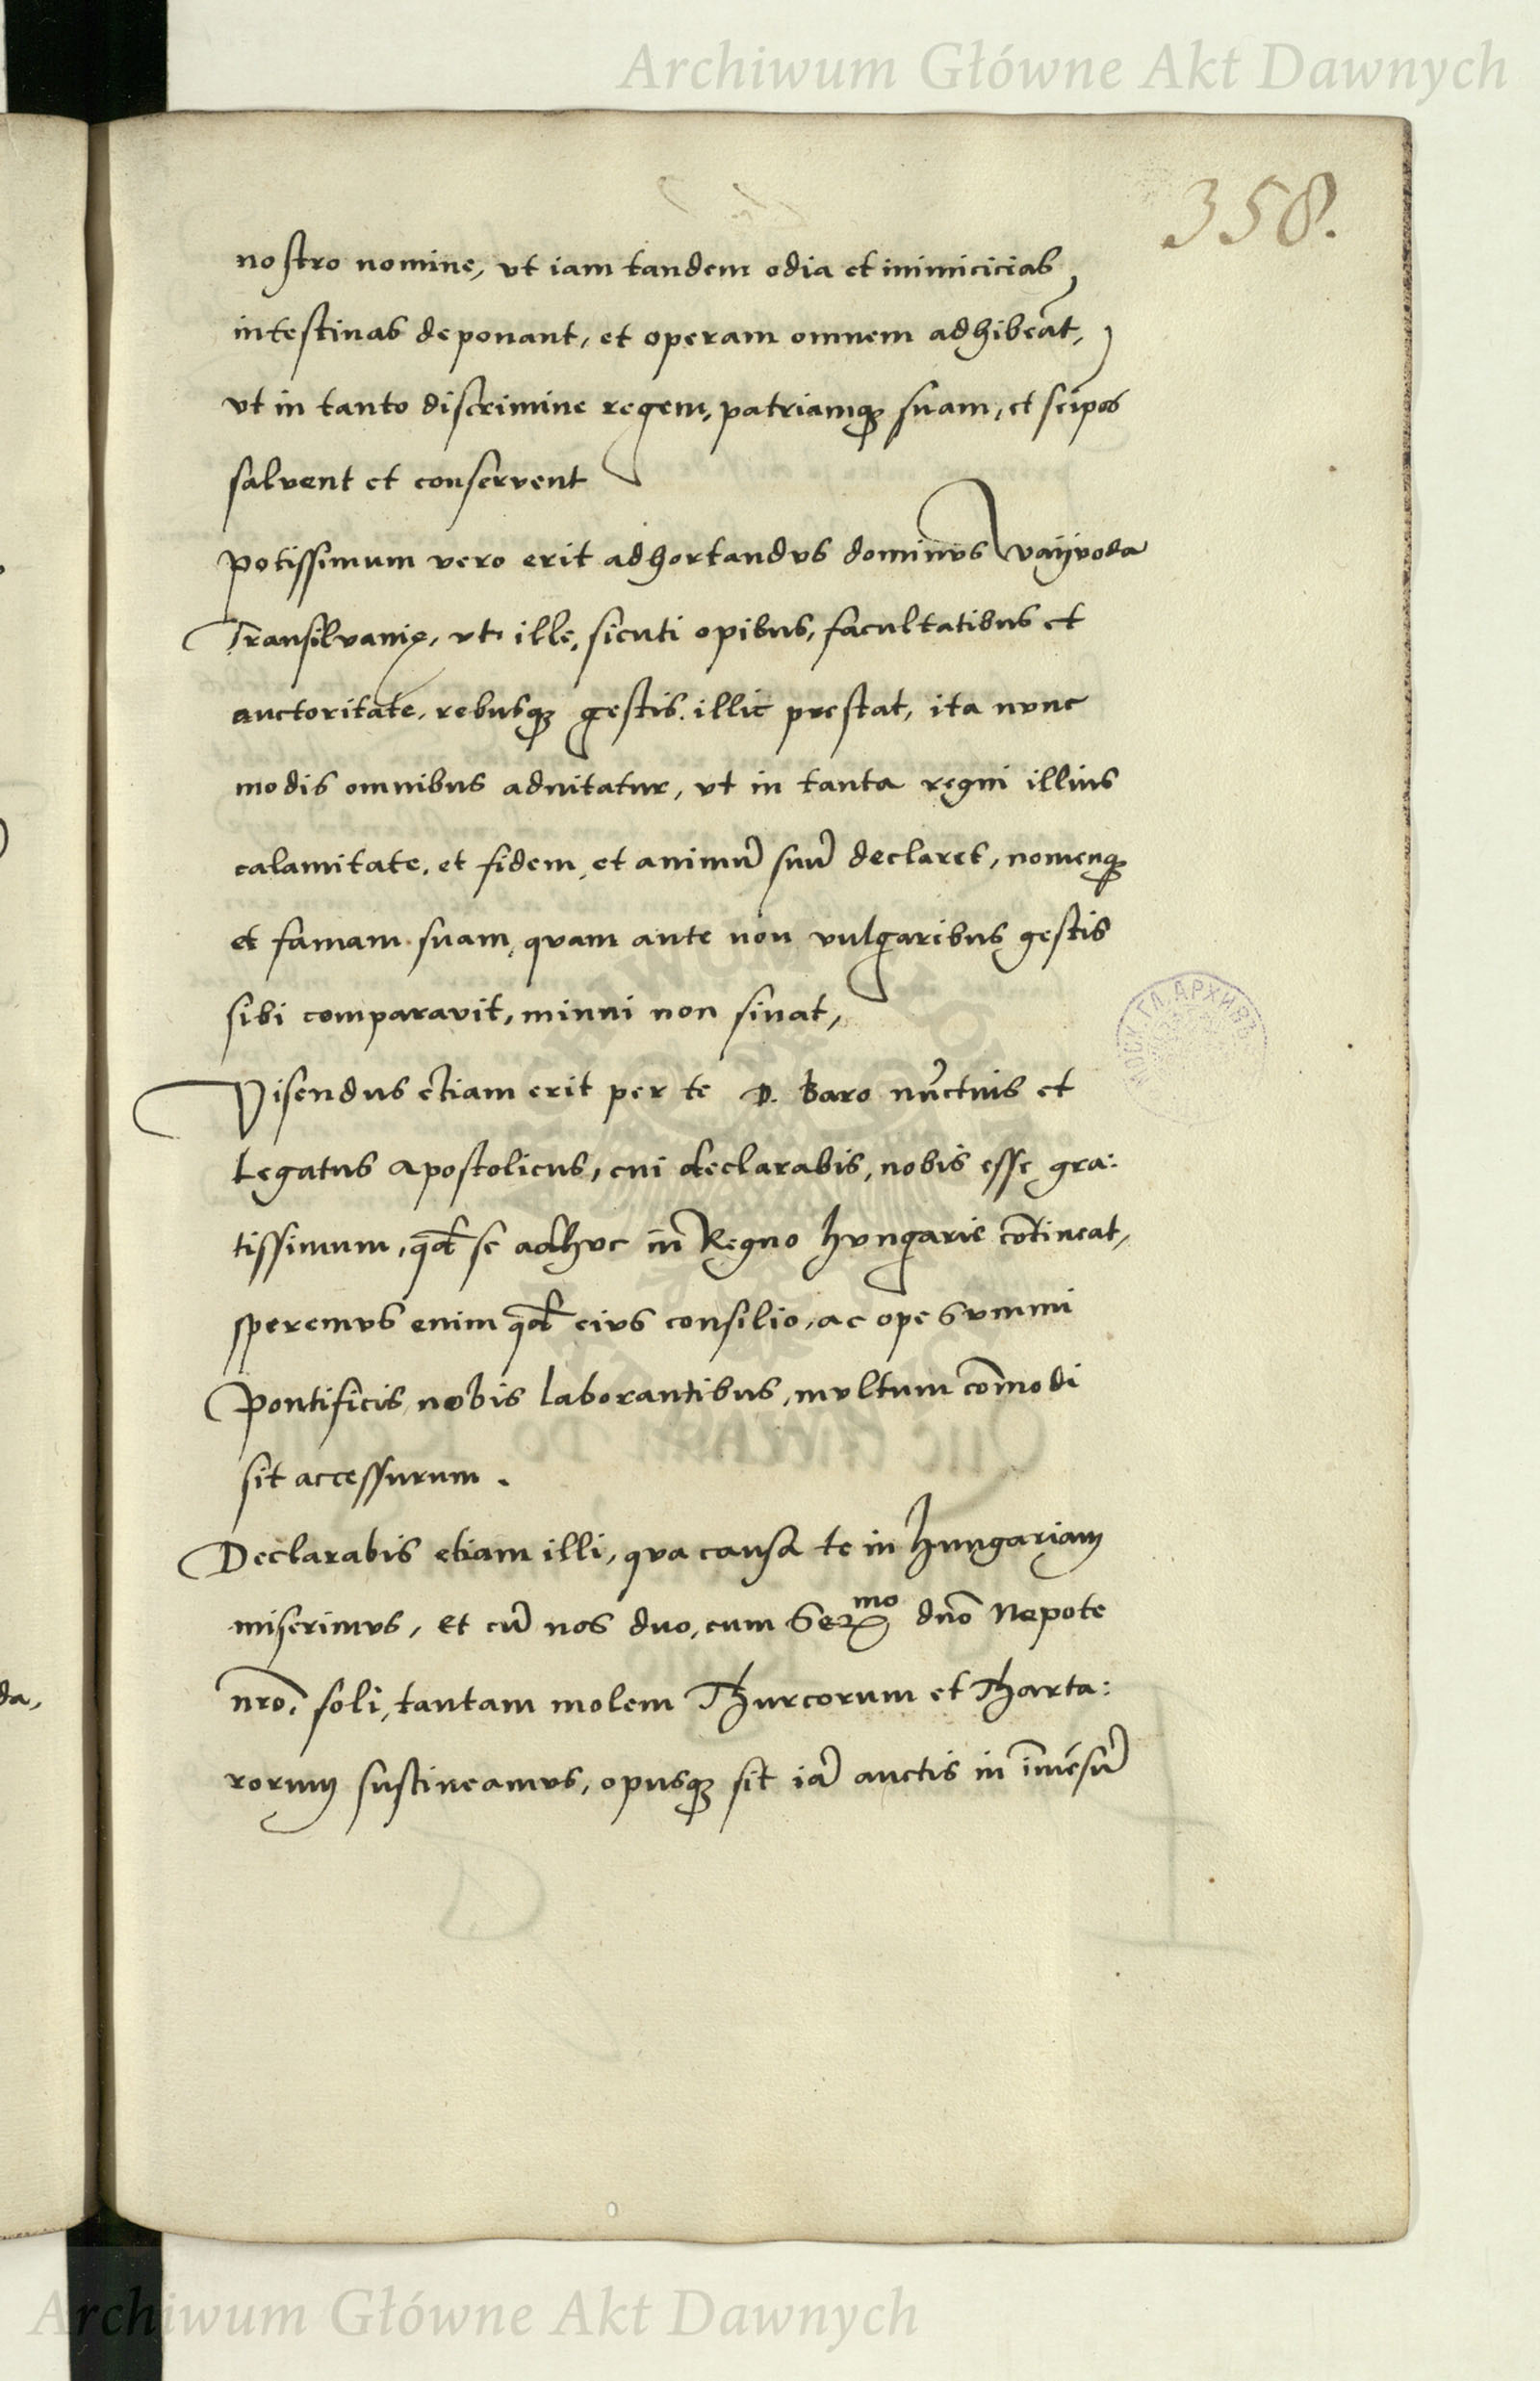 Archiwum Główne Akt Dawnych
358.
nostro nomine, vt iam tandem odia et inimicicias
intestinas deponant, et operam omnem adhibeāt,
vt in tanto discrimine regem, patriamqꝫ suam, et seipos
salvent et conservent
potissimum vero erit adhortandvs dominvs vayvoda
Transilvanię, vt ille, sicuti opibus, facultatibus et
auctoritate, rebusqꝫ gestis illic prestat, ita nvnc
modis omnibus adnitatur, vt in tanta regni illius
calamitate, et fidem, et animū suū declaret, nomenqꝫ
et famam suam, quam ante non vulgaribus gestis
sibi comparavit, minui non sinat,
Visendus etiam erit per te D. baro nūctius et
Legatus Apostolicus, cui declarabis, nobis esse gra:
tissimum, qd̄ se adhvc in Regno hvngarie cōtineat,
speremvs enim qd̄ eivs consilio, ac ope Svmmi
Pontificis nobis laborantibus, mvltum cōmodi
sit accessurum.
Declarabis etiam illi, qva causa te in hungariam
miserimvs, et cū nos dvo, cum Serᵐᵒ dno Nepote
nro, soli, tantam molem Thurcorum et Tharta:
rorum sustineamvs, opusqꝫ sit iā auctis in īmēsū
МОСК. ГЛ. АРХИВЪ
da,
Archiwum Główne Akt Dawnych